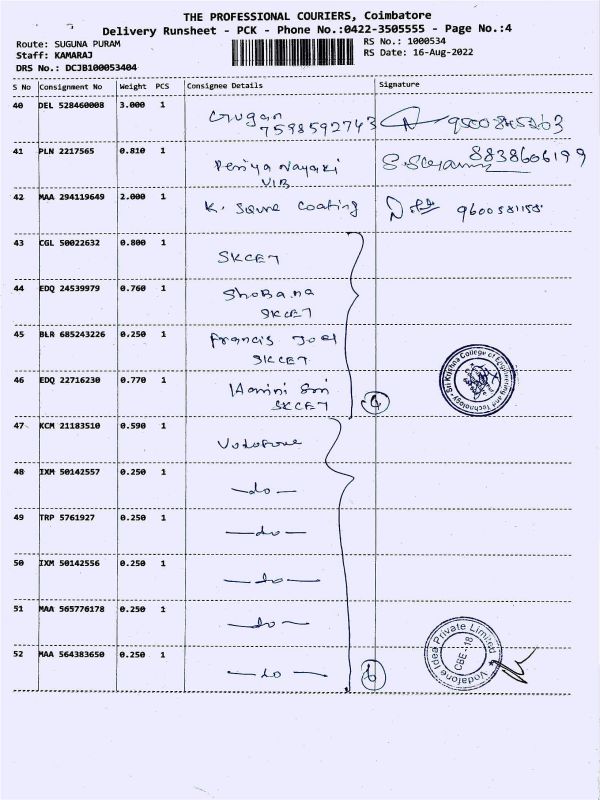 THE PROFESSIONAL COURIERS, Coimbatore
Delivery Runsheet - PCK - Phone No.:0422-3505555 - Page No.:4
Route: SUGUNA PURAM
RS No.: 1000534
Staff: KAMARAJ
RS Date: 16-Aug-2022
DRS No.: DCJB100053404
S No Consignment No Weight PCS Consignee Details Signature
40 DEL 528460008 3.000 1 Gugan
7598592743
41 PLN 2217565 0.810 1 Periya Nayaki 8838606199
VIB
42 MAA 294119649 2.000 1 K. Squre Coating
43 CGL 50022632 0.800 1 SKCET
44 EDQ 24539979 0.760 1 Shobana
SKCET
45 BLR 685243226 0.250 1 Francis Joel
SKCET
46 EDQ 22716230 0.770 1 Harini Sri
SKCET 4
Sri Krishna College of Engineering and Technology
47 KCM 21183510 0.590 1 Vodofone
48 IXM 50142557 0.250 1 —do—
49 TRP 5761927 0.250 1 —do—
50 IXM 50142556 0.250 1 —do—
51 MAA 565776178 0.250 1 —do—
52 MAA 564383650 0.250 1 —do— 6
Vodafone Idea Private Limited
CBE-18